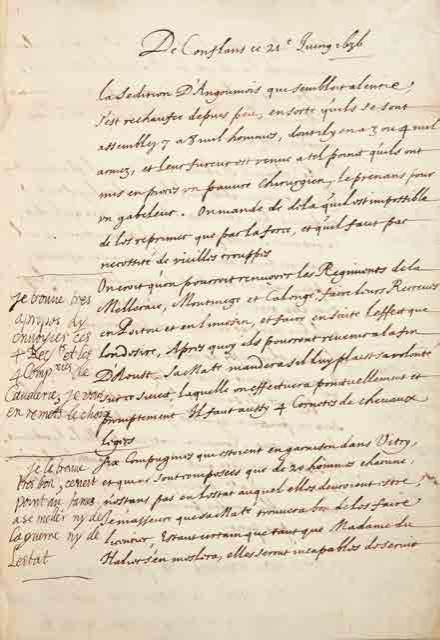 De Conflans ce 21e Juing 1636
la sedition D'Angoumois que sembloit alentie,
s'est rechaufee depuis peu, en sorte qu'ils se sont
assemblez 7 a 8 mil hommes, dont il y en a 3 ou 4 mil
armez, et leur fureur est venue a tel point qu'ils ont
mis en pieces un pauvre Chirurgien, le prenans pour
un gabeleur. On mande de dela qu'il est impossible
de les reprimer que par la force, et qu'il faut par
necessité de vieilles trouppes
On croit qu'on pourroit renvoyer les Regiments de la
Melleraie, Montmege et Calonge faire leurs Recreues
en Poitou et en Limosin, et faire en suite l'effect que
l'on desire, Apres quoy ils pourront revenir a la fin
D'Aoust. Sa Maté mandera s'il luy plaist sa volonté
sur ce sujet, laquelle on effectuera ponctuellement et
promptement Il faut aussy 4 Cornetes de chevaux
legers
Je trouve tres
apropos dy
envoyer ces
4 Reg.ts et les
4 Comp.nies de
Cavalerie, je vous
en remets le choix
Six Compagnies qui estoient en garnison dans Vitry,
et qui ne sont composées que de 20 hommes chacune,
n'estans pas en l'estat auquel elles devroient estre,
le masseur que sa Maté trouvera bon de les faire
licentier, Estant certain que tant que Madame du
Hallier s'en meslera, elles seront incapables de servir
Je le trouve
tres bon, ce n'est
point au fames
a se mesler ny de
la guerre ny de
Lestat